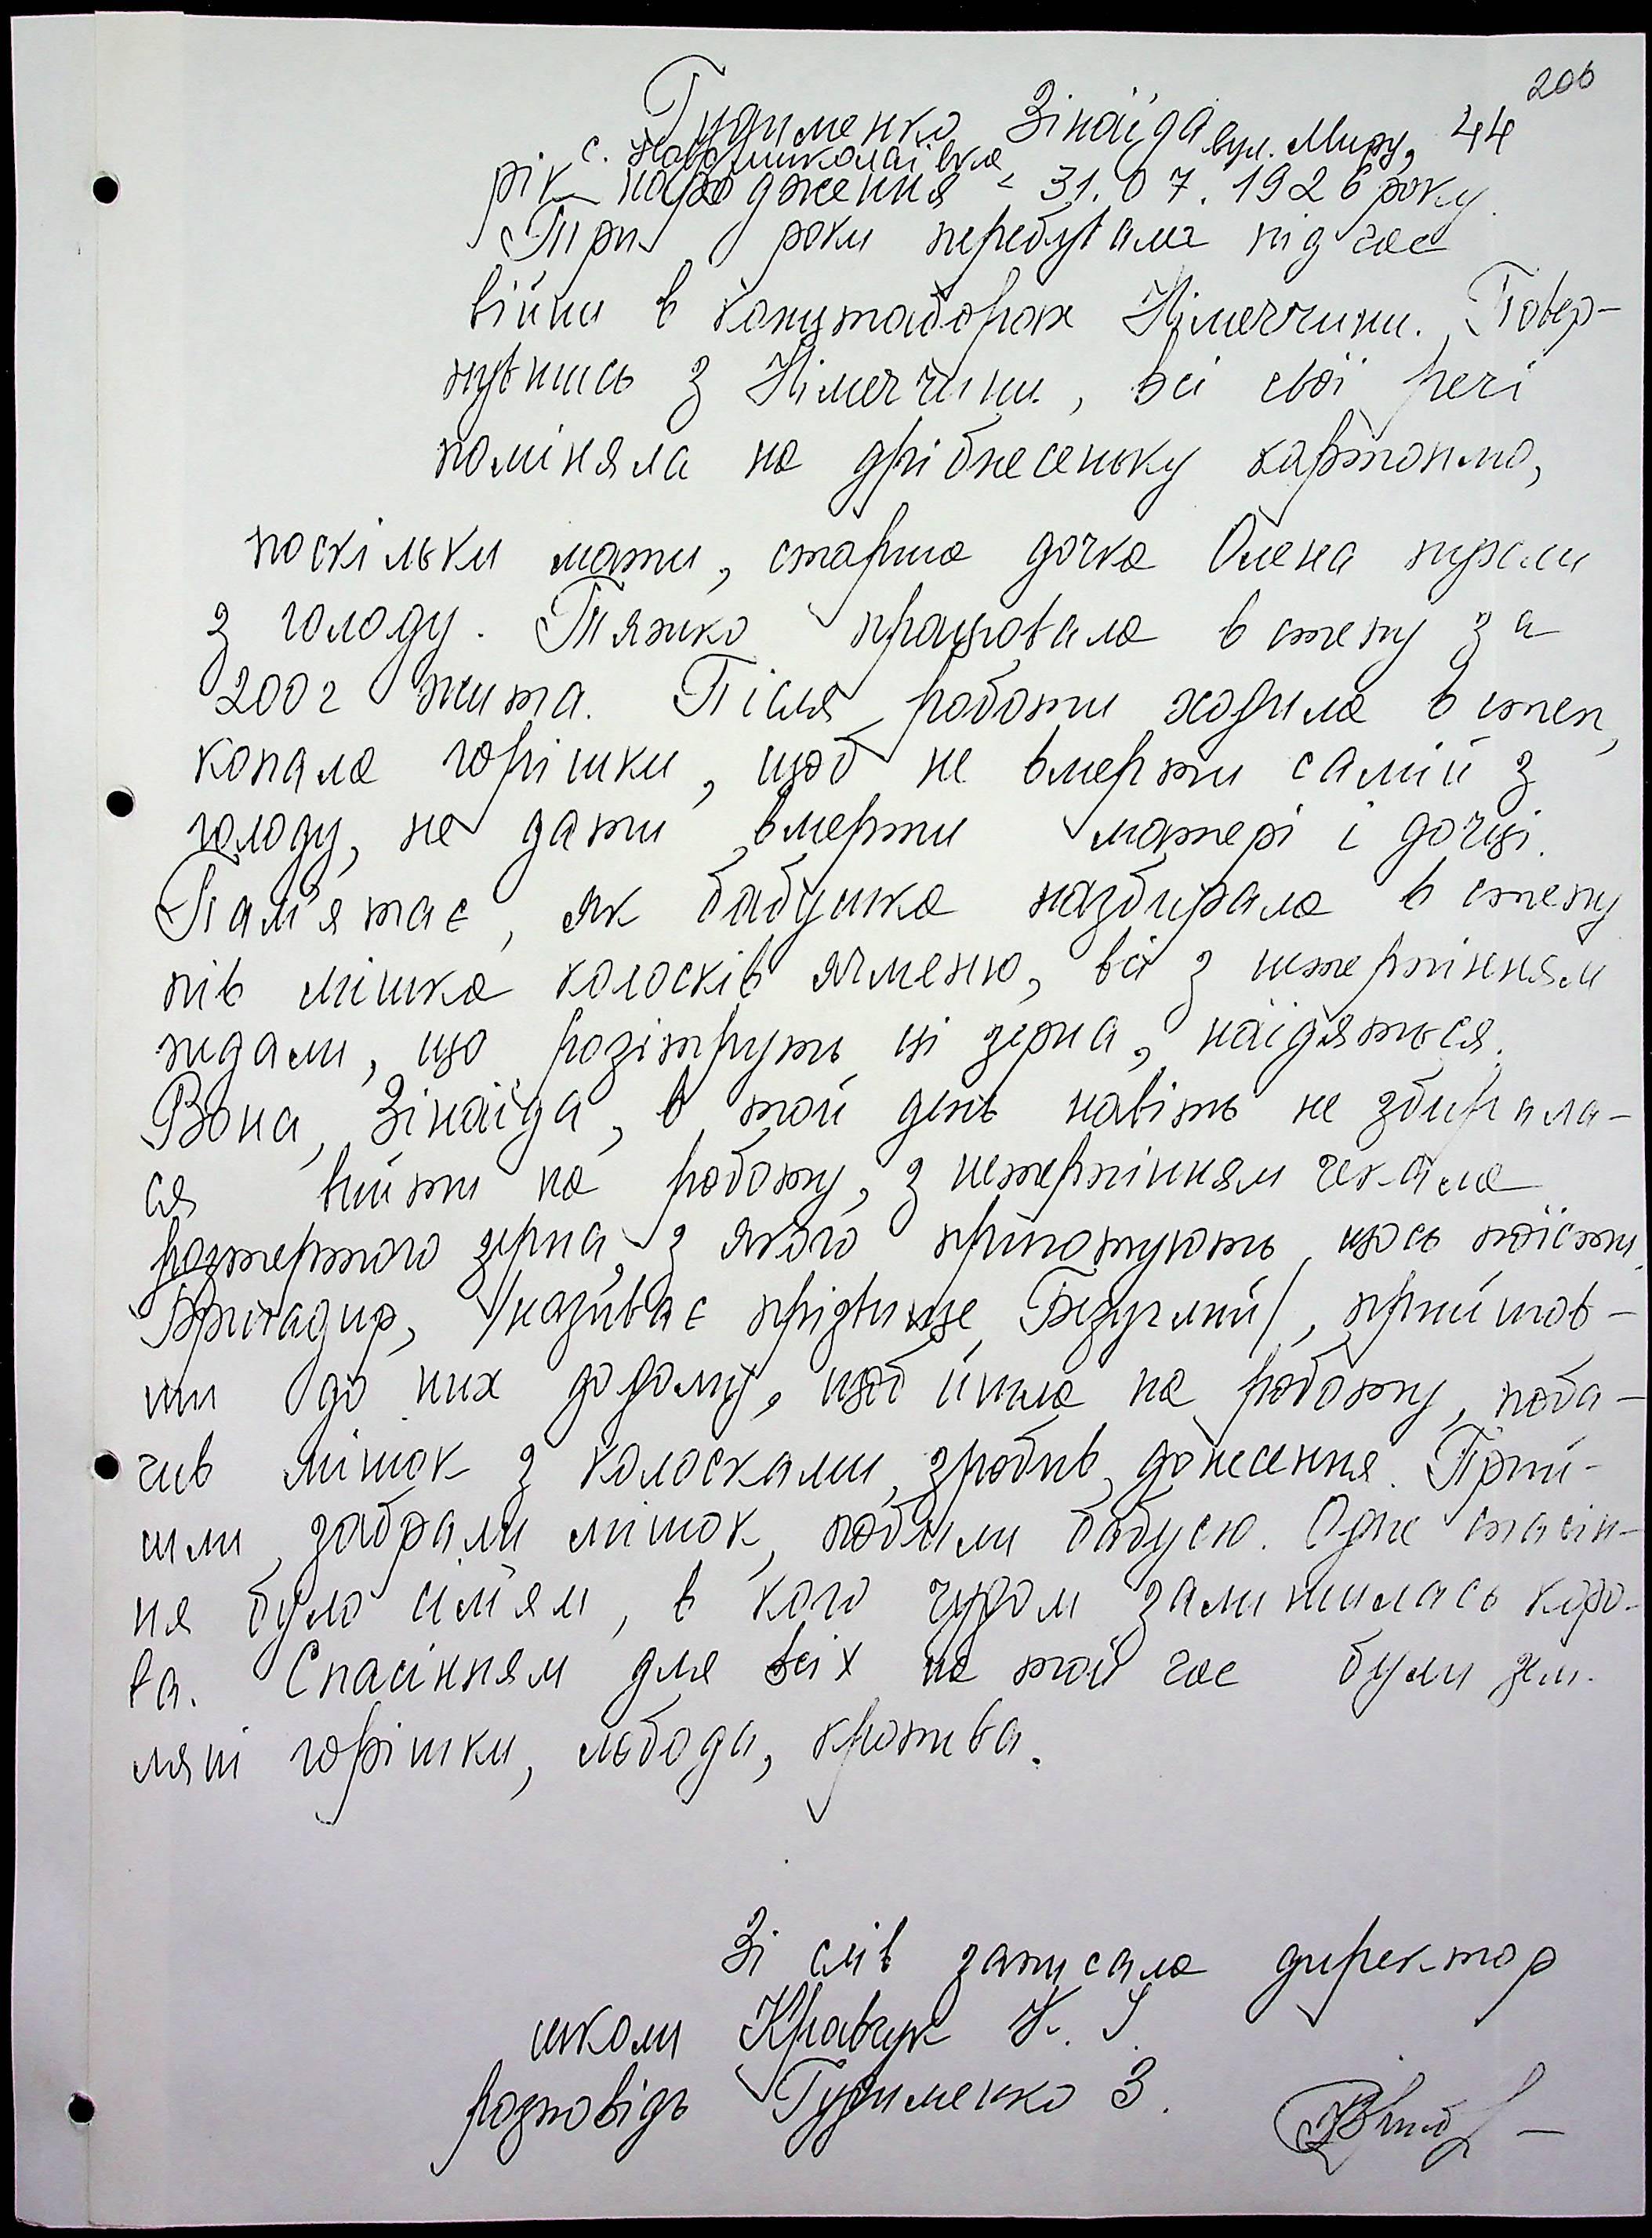 206
Гудименко Зінаїда вул. Миру, 44
с. Новомиколаївка
рік народження - 31.07.1926 року.
Три роки перебувала під час
війни в концтаборах Німеччини. Повер-
нувшись з Німеччини, всі свої речі
поміняла на дрібнесеньку картоплю,
поскільки мати, старша дочка Олена пухли
з голоду. Тяжко працювала в степу за
200 г жита. Після роботи ходила в степ,
копала горішки, щоб не вмерти самій з
голоду, не дати вмерти матері і дочці.
Пам'ятає, як бабушка назбирала в степу
пів мішка колосків ячменю, всі з нетерпінням
ждали, що розітруть ці зерна, наїдяться.
Вона, Зінаїда, в той день навіть не збирала-
ся вийти на роботу, з нетерпінням чекала
розтертого зерна, з якого приготують щось поїсти.
Бригадир, /називає прізвище Безуглий/, прийшов-
ши до них додому, щоб йшла на роботу, поба-
чив мішок з колосками, зробив донесення. Прий-
шли, забрали мішок, побили бабусю. Одне спасін-
ня було сім'ям, в кого чудом залишилась коро-
ва. Спасінням для всіх на той час були зем-
ляні горішки, лобода, кропива.
Зі слів записала директор
школи Кравчук
розповідь Гудименко З.